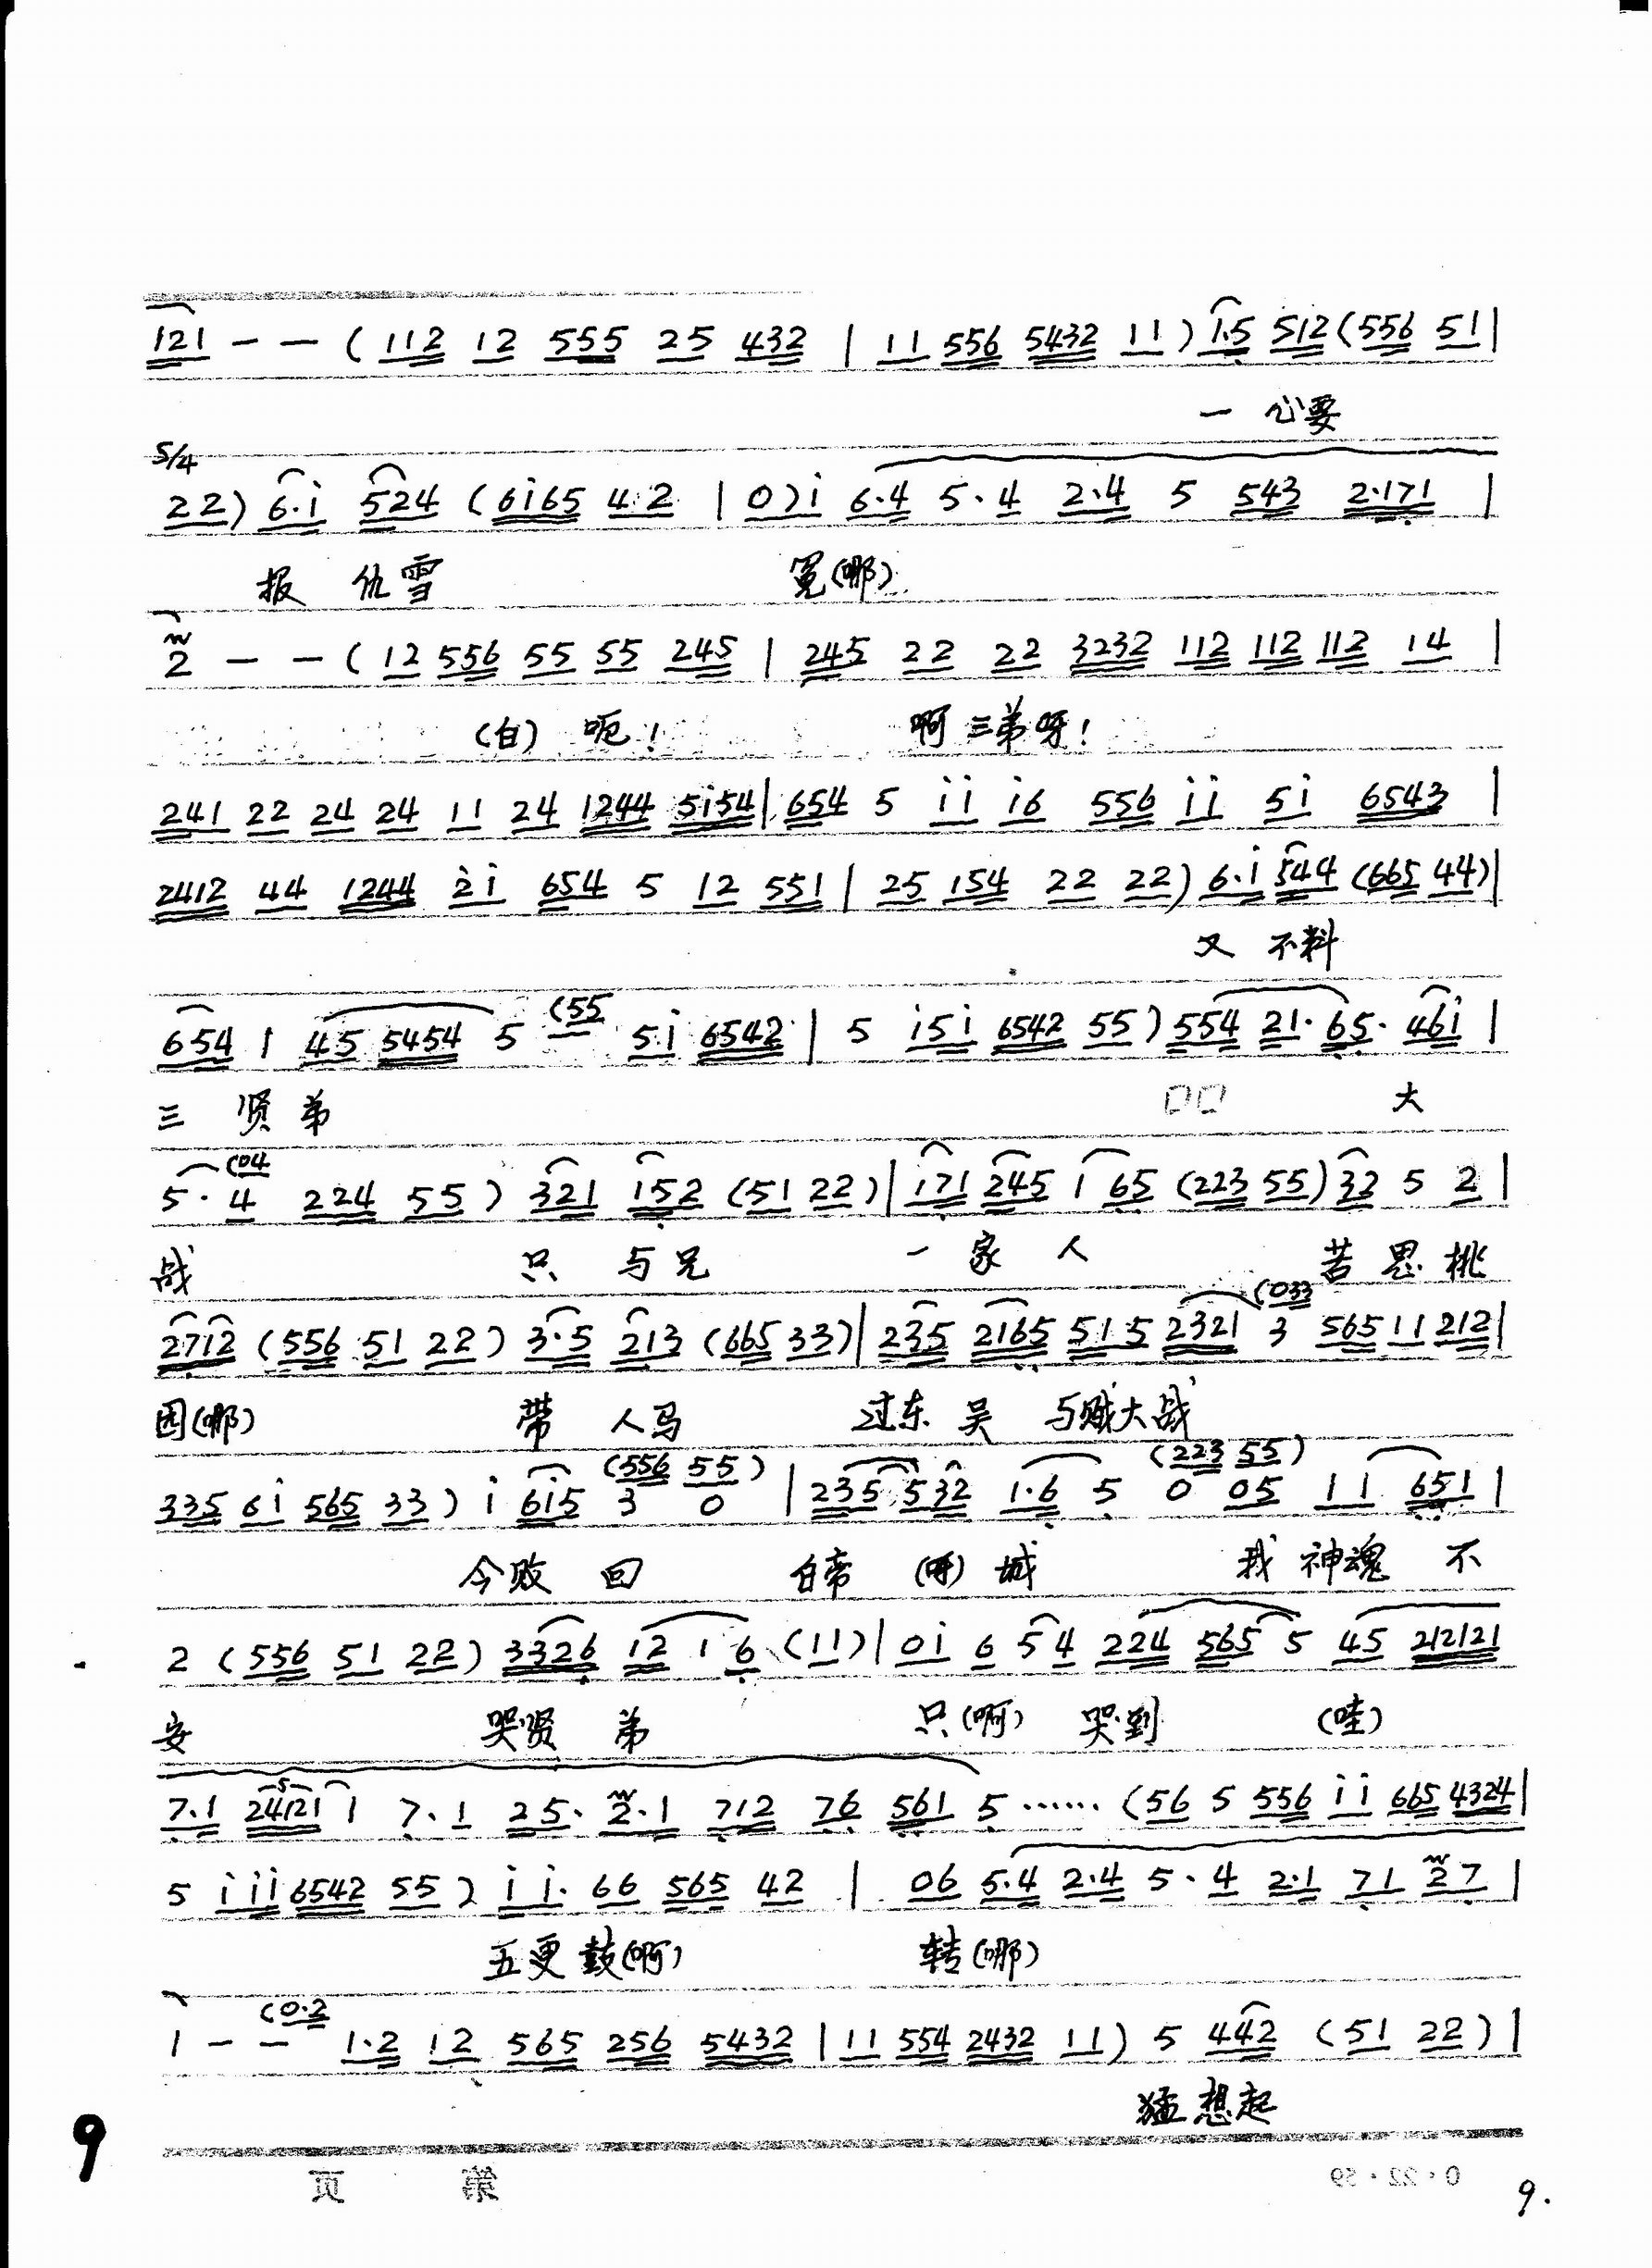 121 - - ( 112 12 555 25 432 | 11 556 5432 11 ) 1.5 512 ( 556 51 |
一 心要
5/4
22 ) 6.i 524 ( 6i65 42 | 0 ) i 6.4 5.4 2.4 5 543 2.171 |
报 仇雪 冤(哪)
2 - - ( 12 556 55 55 245 | 245 22 22 3232 112 112 112 14 |
(白) 呃! 啊三弟呀!
241 22 24 24 11 24 1244 5i54 | 654 5 ii i6 556 ii 5i 6543 |
2412 44 1244 2i 654 5 12 551 | 25 154 22 22 ) 6.i 544 ( 665 44 ) |
又 不料
654 1 45 5454 5 (55 5i 6542 | 5 i5i 6542 55 ) 554 21. 65. 46i |
三 贤 弟 口口 大
5. 4 (04 224 55 ) 321 152 ( 51 22 ) | 171 245 1 65 ( 223 55 ) 32 5 2 |
战 只 与兄 一 家 人 苦 思 桃
2712 ( 556 51 22 ) 3.5 213 ( 665 33 ) | 235 2165 51 5 2321 3 (033 565 11 212 |
园(哪) 带 人马 过东 吴 与贼大战
335 6i 565 33 ) i 6i5 3 0 (556 55) | 235 532 1.6 5 0 (223 55) 05 11 651 |
今败 回 白帝 (呀) 城 我 神魂 不
2 ( 556 51 22 ) 3326 12 1 6 ( 11 ) | 0i 6 5 4 224 565 5 45 212121
安 哭贤 弟 只(啊) 哭到 (哇)
7.1 24121 1 7.1 25. 2.1 712 76 561 5 …… ( 56 5 556 ii 665 4324 |
5 i ii 6542 55 ) i i. 66 565 42 | 06 5.4 2.4 5.4 2.1 71 27 |
五更 鼓(啊) 转(哪)
1 - - (0.2 1.2 12 565 256 5432 | 11 554 2432 11 ) 5 442 ( 51 22 ) |
猛 想起
9
第 页
0·22·59
9.